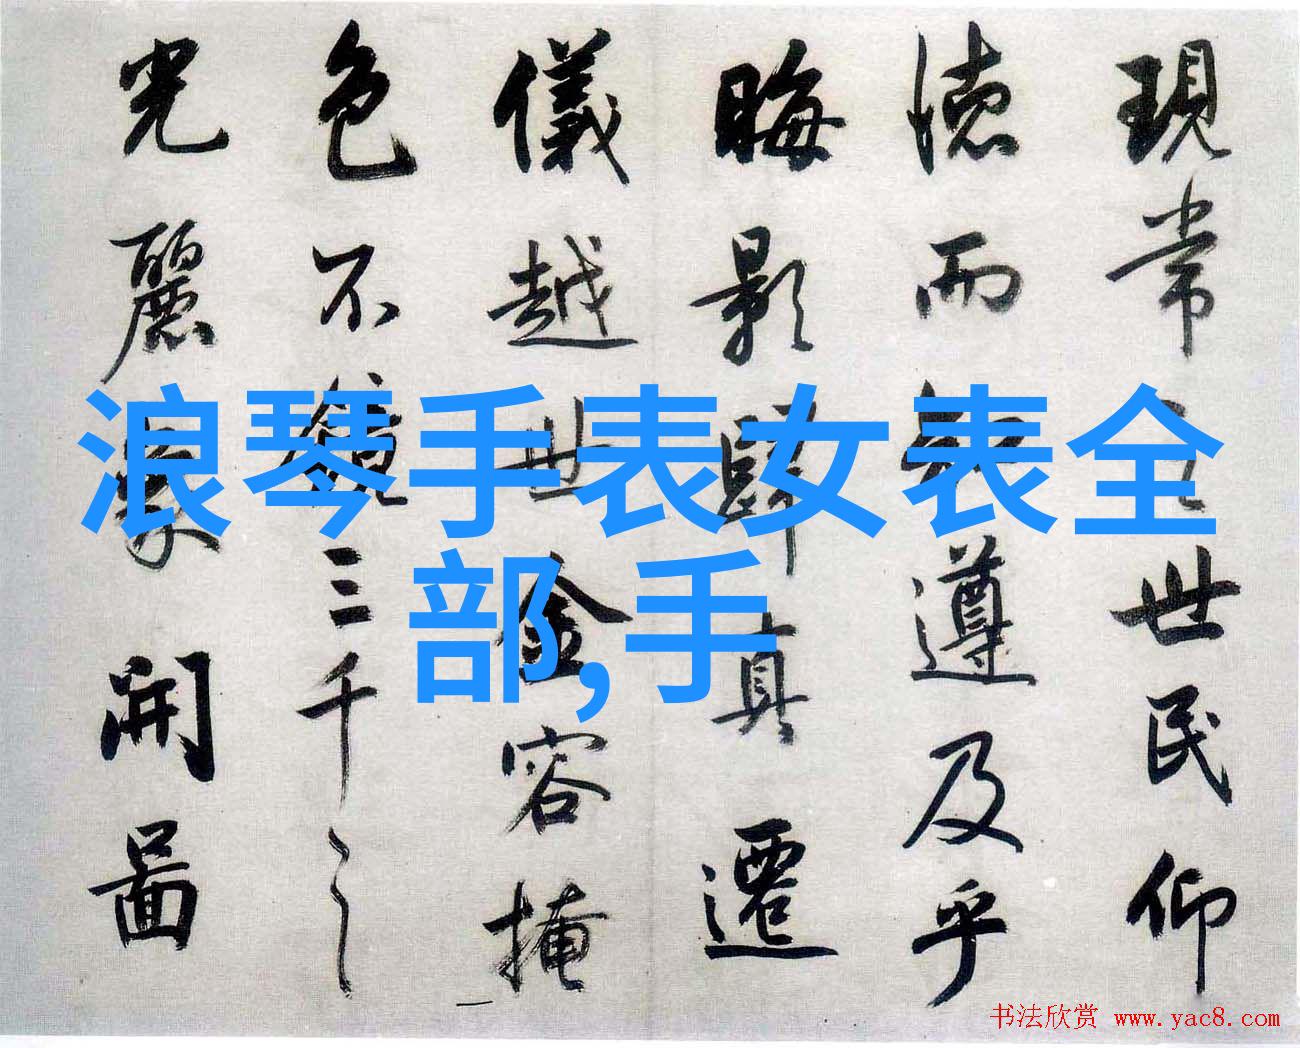 現常之世民仰
德而知遵及乎
晦影歸真遷
儀越世金容掩
色不鏡三千之
光麗象開圖
浪琴手表女表全
部,手
书法欣赏 www.yac8.com